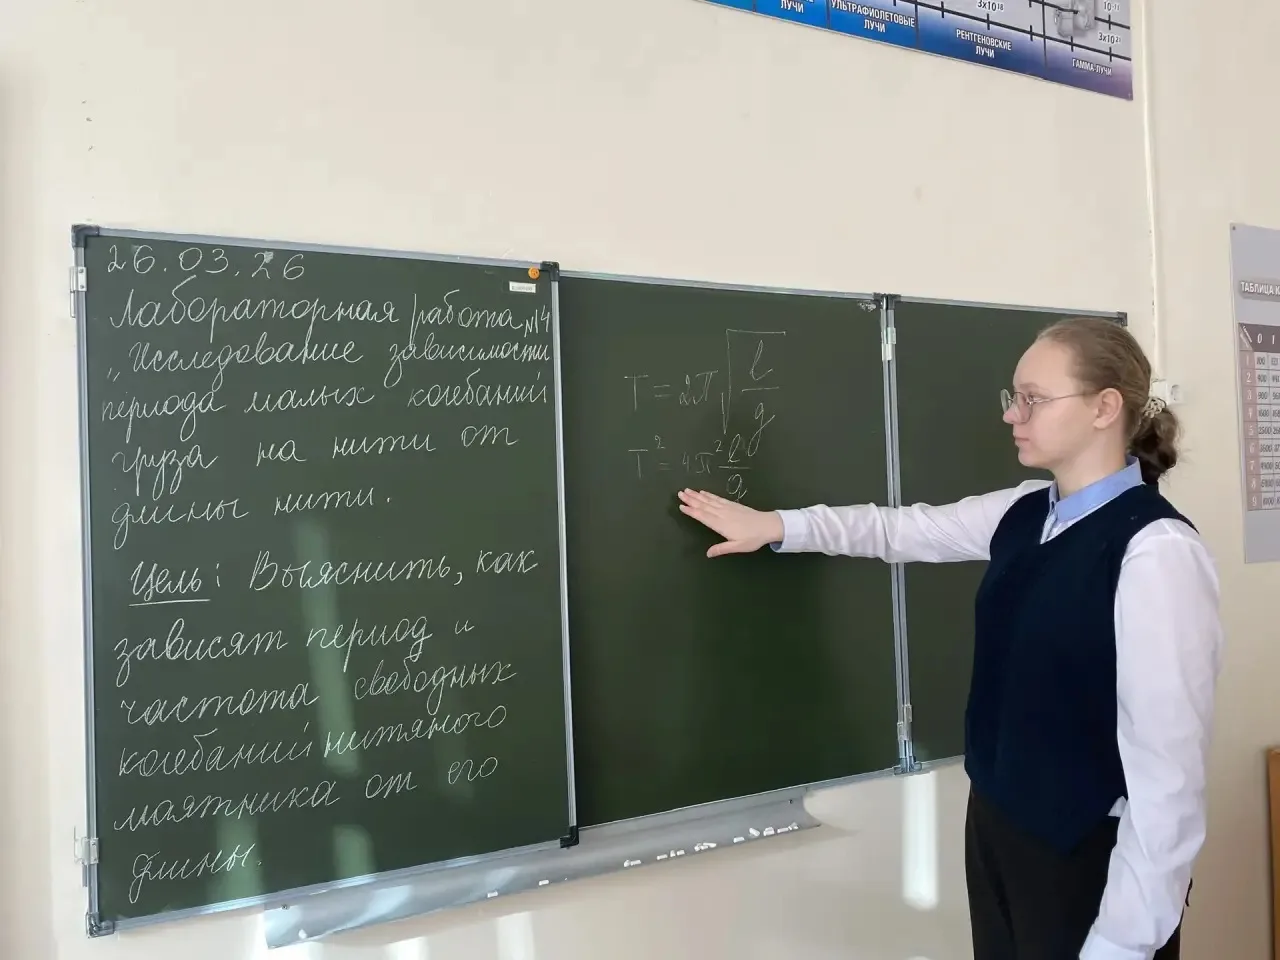 УЛЬТРАФИОЛЕТОВЫЕ
ЛУЧИ
ЛУЧИ
3x10¹⁸
РЕНТГЕНОВСКИЕ
ЛУЧИ
3x10²¹
ГАММА-ЛУЧИ
26.03.26
Лабораторная работа №4
„Исследование зависимости
периода малых колебаний
груза на нити от
длины нити.
Цель: Выяснить, как
зависят период и
частота свободных
колебаний нитяного
маятника от его
длины.
T = 2π√(l/g)
T² = 4π² l/g
ТАБЛИЦА К